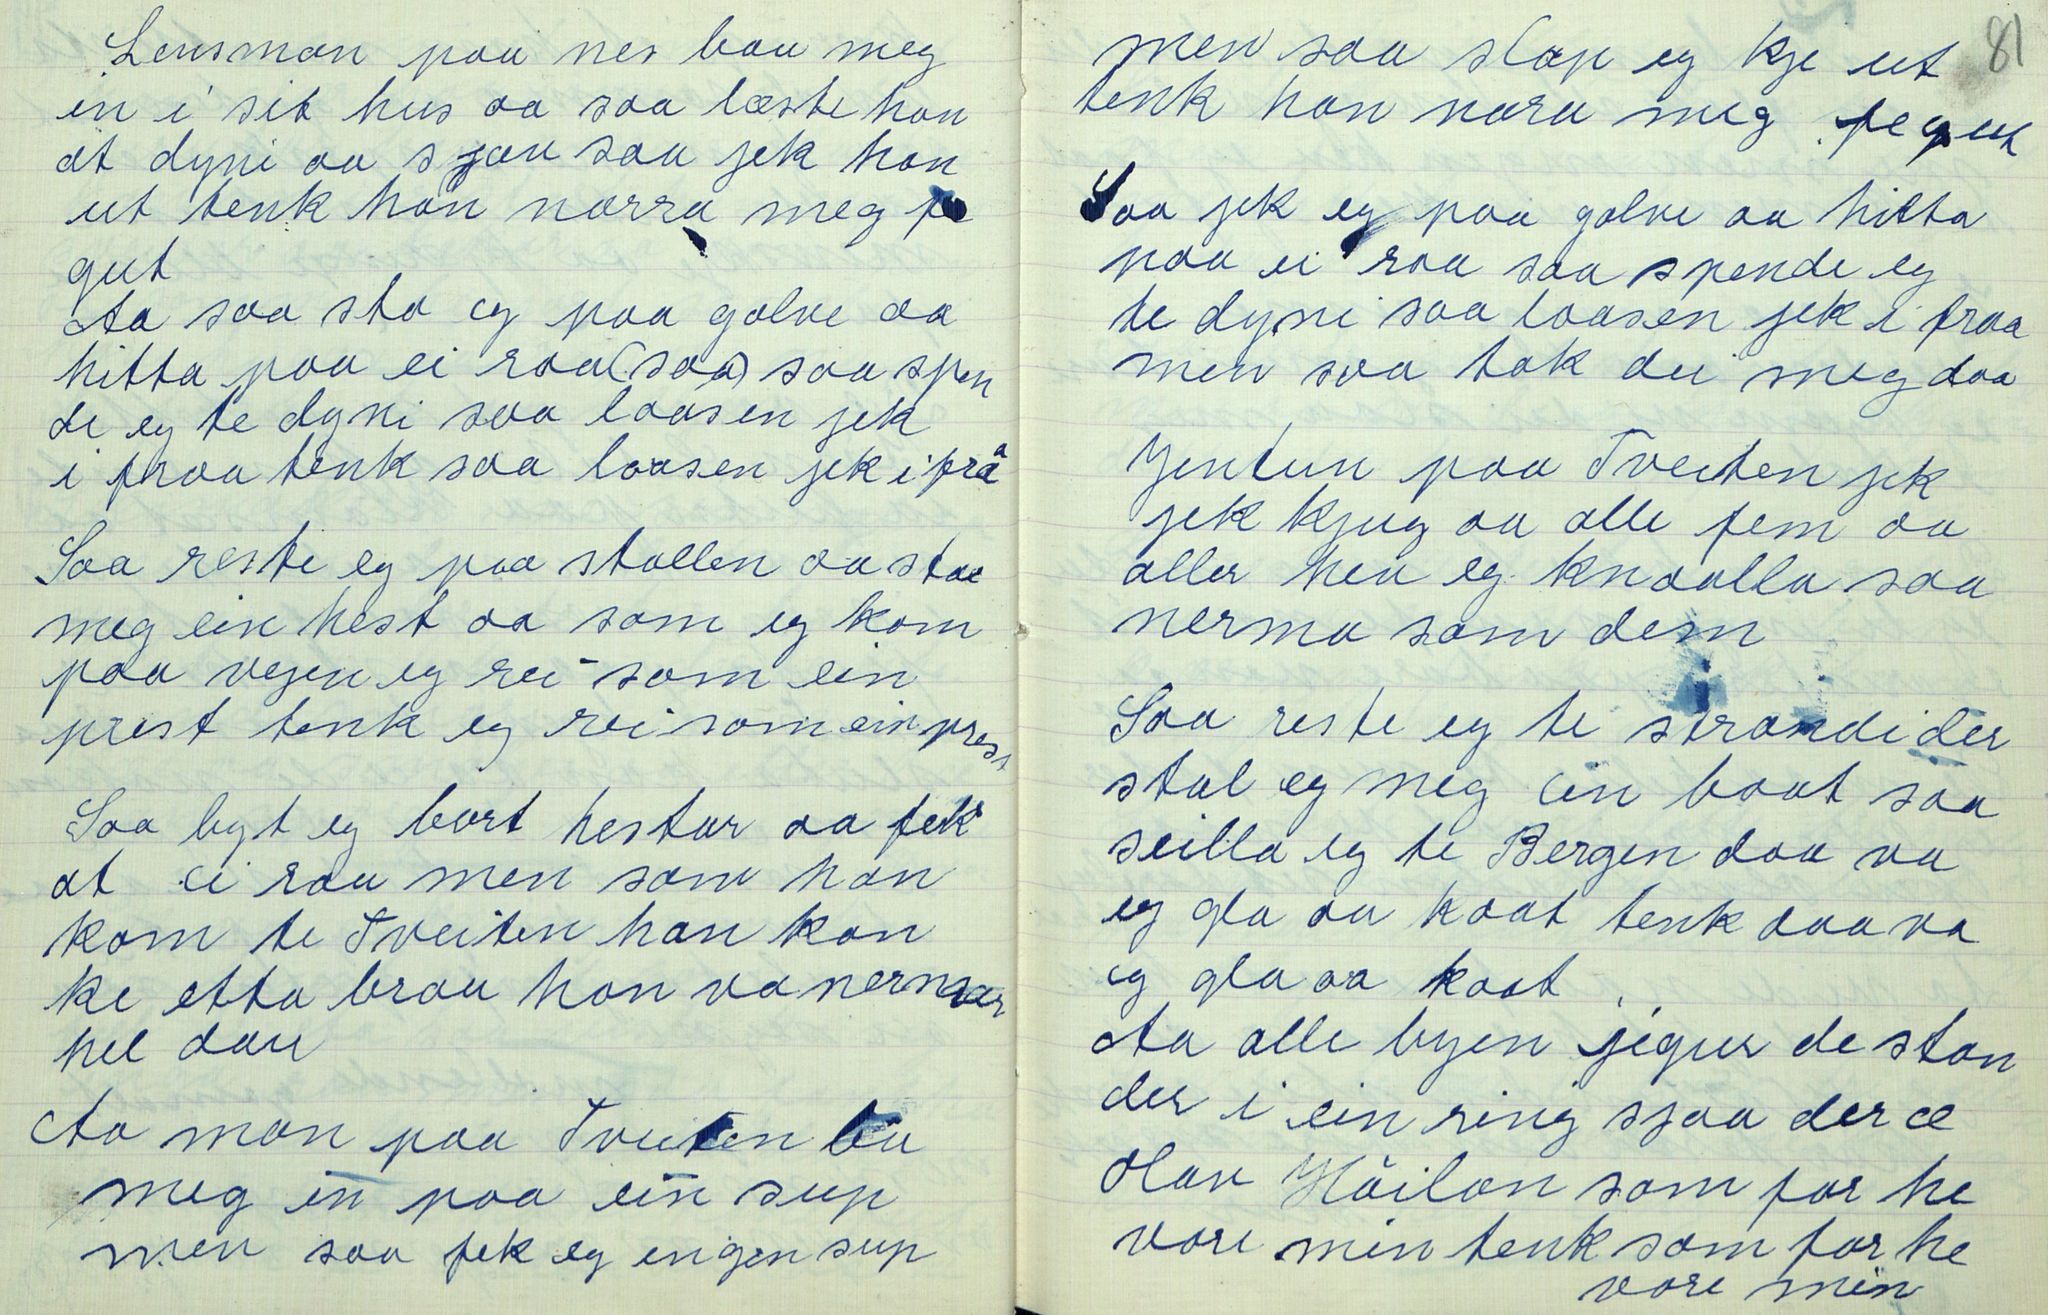 Lensman paa nes baa meg
in i sit hus aa saa læste han
at dyni aa sjau saa jek han
ut tenk han narra meg fe
gut
Aa saa sto eg paa golve aa
hitta paa ei raa (saa) saa spen
de eg te dyni saa laasen jek
i fraa tenk saa laasen jek i frå
Saa reste eg paa stallen aa stal
meg ein hest aa som eg kom
paa vegen eg rei som ein
prest tenk eg rei som ein prest
Saa byt eg bort hestar aa fek
at ei raa men som han
kom te Tveiten han kan
ke etta braa han va nermar
hel dau
Aa man paa Tveiten ba
meg in paa ein sup
men saa fek eg engen sup
81
men saa slap eg kje ut
tenk han nara meg fe gut
Saa jek eg paa golve aa hitta
paa ei raa saa spende eg
te dyni saa laasen jek i fraa
men saa tok dei meg daa
Jentun paa Tveiten jek
jek kjug aa alle fem aa
aller hen eg knaalla saa
nerma som dem
Saa reste eg te strandi der
stal eg meg ein baat saa
seilla eg te Bergen daa va
eg gla aa kaat tenk daa va
eg gla aa kaat
Aa alle byen jegur de stan
der i ein ring sjaa der æ
Olav Håilan som for he
vore min tenk som for he
vore min